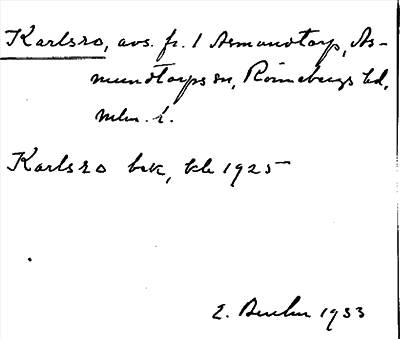 Karlsro, avs. fr. 1 Asmundtorp, As-
mundtorps sn, Rönnebergs hd,
Mlm. l.
Karlsro bek, kb 1925
E. 1933